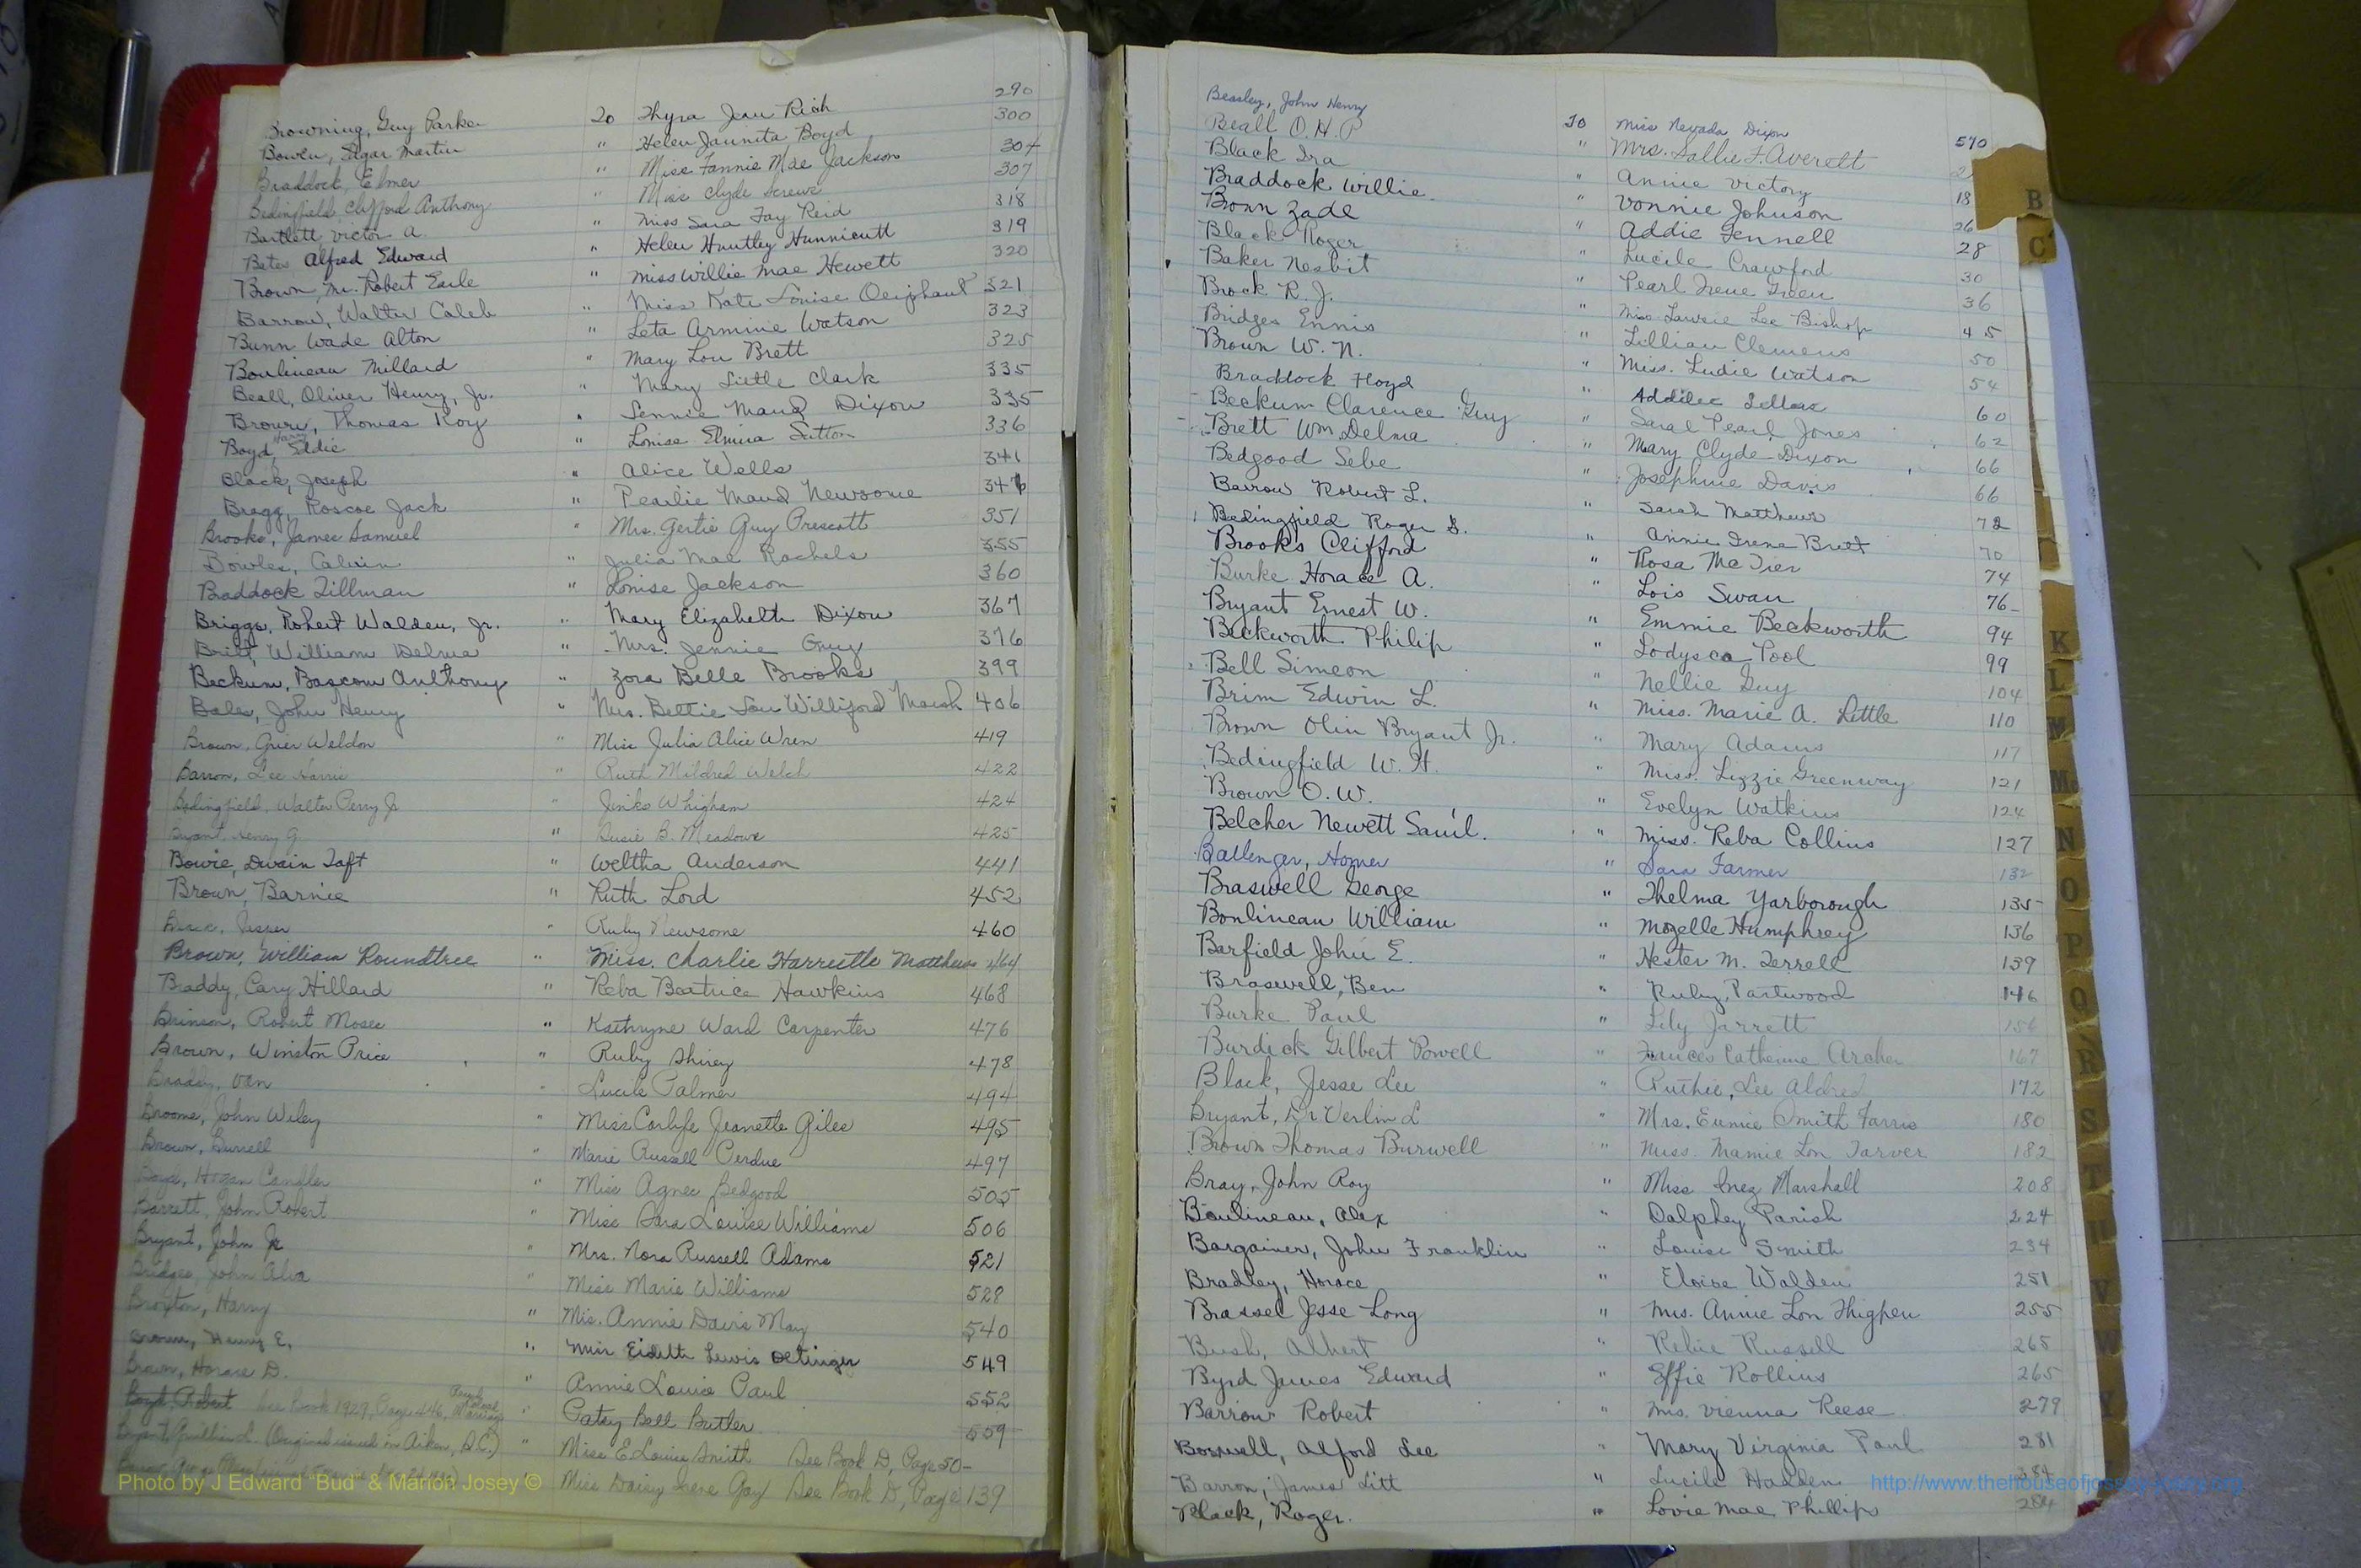 290
Browning, Guy Parker To Thyra Jean Rich 300
Bowen, Edgar Martin " Helen Jaunita Boyd 304
Braddock, Elmer " Miss Fannie Mae Jackson 307
Bedingfield, Clifford Anthony " Miss Clyde Screws 318
Bartlett, Victor A. " Miss Sara Fay Reid 319
Alfred Edward " Helen Huntley Hunnicutt 320
Brown, Mr. Robert Earle " Miss Willie Mae Hewett 321
Barrow, Walter Caleb " Miss Kate Louise Oliphant 323
Bunn Wade Alton " Leta Armine Watson 325
Boulineau Millard " Mary Lou Brett 335
Beall, Oliver Henry, Jr. " Mary Little Clark 335
Brown, Thomas Roy " Lennie Maud Dixon 336
Boyd, Harry Eddie " Louise Elmira Sutton 341
Black, Joseph " Alice Wells
Bragg, Roscoe Jack " Pearlie Maud Newsome 351
Brooks, James Samuel " Mrs. Gertie Guy Prescott 355
Bowles, Calvin " Julia Mae Rachels 360
Braddock Tillman " Louise Jackson 367
Briggs, Robert Walden, Jr. " Mary Elizabeth Dixon 376
Britt, William Delma " Mrs. Jennie Guy 399
Beckum, Bascom Anthony " Zora Belle Brooks
Bales, John Henry " Mrs. Bettie Lou Williford Marsh 406
Brown, Grier Weldon " Miss Julia Alice Wren 419
Barron, Lee Harris " Ruth Mildred Welch 422
Bedingfield, Walter Perry Jr " Jinks Whigham 424
Bryant, Henry G. " Susie B. Meadows 425
Bowie, Dwain Taft " Weltha Anderson 441
Brown, Barnie " Ruth Lord 452
" Ruby Newsome 460
Brown, William Roundtree " Miss. Charlie Harriette Matthews 464
Braddy, Cary Hillard " Reba Beatrice Hawkins 468
Brinson, Robert Moses " Kathryne Ward Carpenter 476
Brown, Winston Price " Ruby Shirey 478
Braddy, Van " Lucile Palmer 494
Broome, John Wiley " Miss Carlyle Jeanette Giles 495
Brown, Burrell " Marie Russell Perdue 497
Boyd, Hogan Candler " Miss Agnes Bedgood 505
Barrett, John Robert " Miss Sara Louise Williams 506
Bryant, John Jr " Mrs. Nora Russell Adams 521
Bridges, John Alva " Miss Marie Williams 528
Broxton, Harry " Mis. Annie Davis May 540
Brown, Henry E. " Miss Eidith Lewis Oetinger 549
Brown, Horace D. " Annie Louise Paul 552
Boyd, Robert See Book 1929, Page 446, Colored Marriage " Patsy Bell Butler 559
Bryant, (Original issued in Aiken, S.C.) " Miss E. Louise Smith See Book D, Page 50-
Miss Daisy Irene Gay See Book D, Page 139
Beasley, John Henry To Miss Nevada Dixon 570
Beall O. H. P " Mrs. Sallie F. Averett
Black Ira " Annie Victory 18
Braddock Willie " Vonnie Johnson 26
Bonn Zade " Addie Fennell 28
Black Roger " Lucile Crawford 30
Baker Nesbit " Pearl Irene Green 36
Brock R. J. " Miss Lee Bishop 45
Bridges Ennis " Lillian Clemens 50
Brown W. N. " Miss. Ludie Watson 54
Braddock Floyd " Addilee 60
Beckum Clarence Guy " Sarah Pearl Jones 62
Brett Wm Delma " Mary Clyde Dixon 66
Bedgood Sebe " Josephine Davis 66
Barrow Robert L. " Sarah Matthews 72
Bedingfield Roger S. " Annie Irene Brett 70
Brooks Clifford " Rosa McTier 74
Burke Horace A. " Lois Swan 76
Bryant Ernest W. " Emmie Beckworth 94
Beckworth Philip " Lodysca Pool 99
Bell Simeon " Nellie Guy 104
Brim Edwin L. " Miss. Marie A. Little 110
Brown Olin Bryant Jr. " Mary Adams 117
Bedingfield W. H. " Miss. Lizzie Greenway 121
Brown O. W. " Evelyn Watkins 124
Belcher Newett Saml. " Miss. Reba Collins 127
Ballenger, Homer " Sara Farmer 132
Braswell George " Thelma Yarborough 135
Boulineau William " Mozelle Humphrey 136
Barfield John E. " Hester M. Terrell 139
Braswell, Ben " Ruby Partwood 146
Burke Paul " Lily Jarrett 156
Burdick Gilbert Powell " Frances Catherine Archer 167
Black, Jesse Lee " Ruthie Lee Aldred 172
Bryant, Dr Verlin L " Mrs. Eunice Smith Farris 180
Brown Thomas Burwell " Miss. Mamie Lou Tarver 182
Bray, John Roy " Miss Inez Marshall 208
Boulineau, Alex " Dalphey Parish 224
Bargainer, John Franklin " Louise Smith 234
Bradley, Horace " Eloise Walden 251
Brassel Jesse Long " Mrs. Annie Lou Thigpen 255
Bush, Albert " Rebie Russell 265
Byrd James Edward " Effie Rollins 265
Barrow Robert " Ms. Vienna Reese 279
Boswell, Alford Lee " Mary Virginia Paul 281
Barron, James Litt " Lucile Hadden 384
Black, Roger. " Lovie Mae Phillips 284
B
C
K
L
M
Mc
N
O
P
Q
R
S
T
U
V
W
Y
Photo by J Edward "Bud" & Marion Josey ©